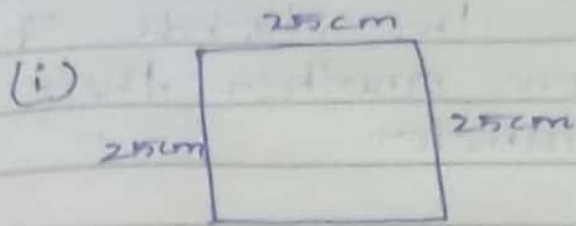 25cm
(i)
25cm
25cm